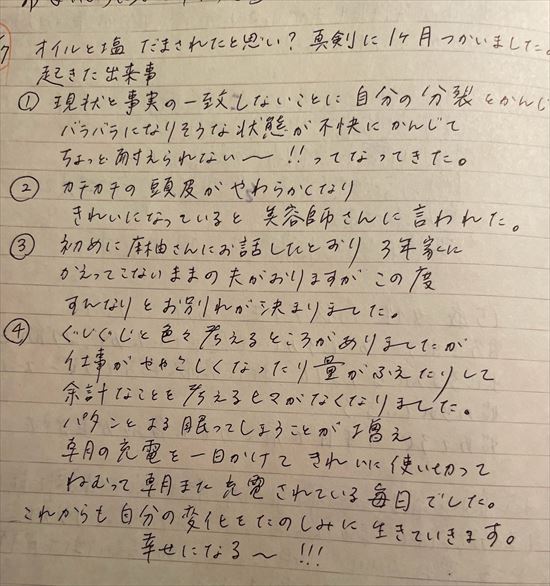 オイルと塩 だまされたと思い? 真剣に1ヶ月つかいました。
起きた出来事
① 現状と事実の一致しないことに自分の分裂をかんじ
バラバラになりそうな状態が不快にかんじて
ちょっと耐えられない〜!!ってなってきた。
② カチカチの頭皮がやわらかくなり
きれいになっていると美容師さんに言われた。
③ 初めに麻柚さんにお話したとおり 3年家に
かえってこないままの夫がおりますが この度
すんなりとお別れが決まりました。
④ ぐじぐじと色々考えるところがありましたが
仕事がややこしくなったり量がふえたりして
余計なことを考えるヒマがなくなりました。
パタンとよる眠ってしまうことが増え
朝の充電を一日かけてきれいに使い切って
ねむって朝また充電されている毎日でした。
これからも自分の変化をたのしみに生きていきます。
幸せになる〜!!!